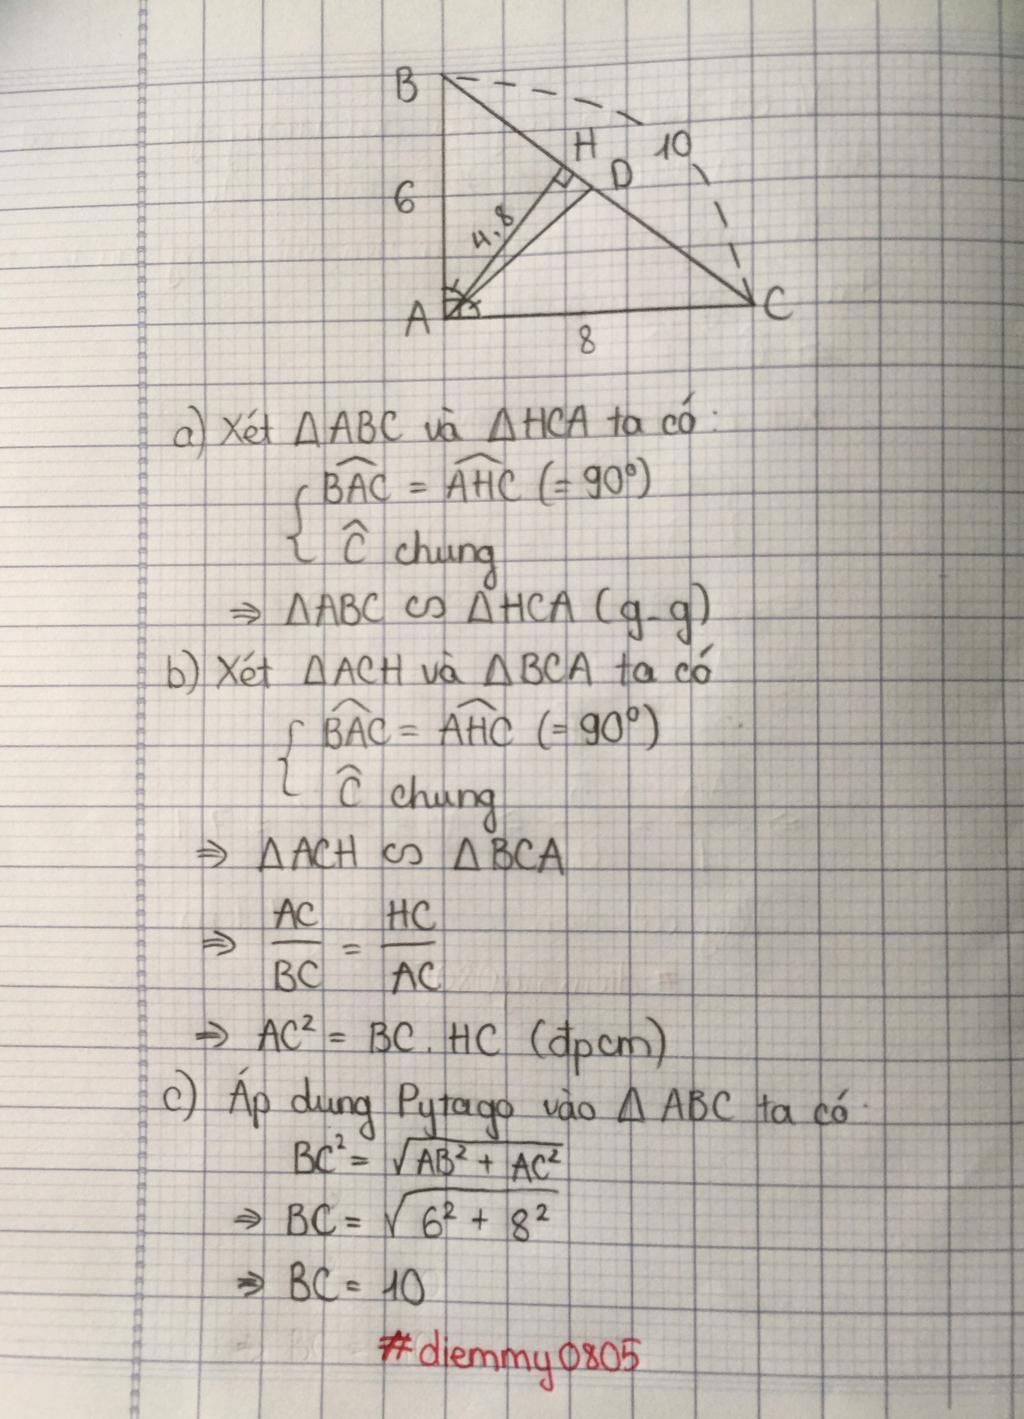 B
H 10
D
6
4.8
A C
8
a) Xét ΔABC và ΔHCA ta có:
BAC = AHC (= 90°)
Ĉ chung
⇒ ΔABC ∽ ΔHCA (g-g)
b) Xét ΔACH và ΔBCA ta có
BAC = AHC (= 90°)
Ĉ chung
⇒ ΔACH ∽ ΔBCA
⇒ AC/BC = HC/AC
⇒ AC² = BC. HC (đpcm)
c) Áp dụng Pytago vào ΔABC ta có.
BC² = √AB² + AC²
⇒ BC = √6² + 8²
⇒ BC = 10
#diemmy0805